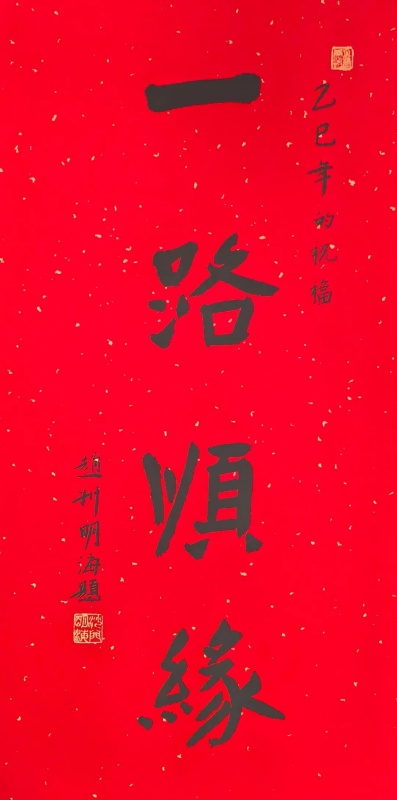 乙巳年的祝福
一路順緣
趙州明海題